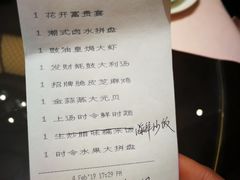 1 花开富贵宴
1 潮式卤水拼盘
1 豉油皇焗大虾
1 发财蚝豉大利汤
1 招牌脆皮芝麻鸡
1 金蒜蒸大元贝
1 上汤时令鲜时蔬
1 生炒腊味糯米饭
1 时令水果大拼盘
8 Feb'19 17:29 PM